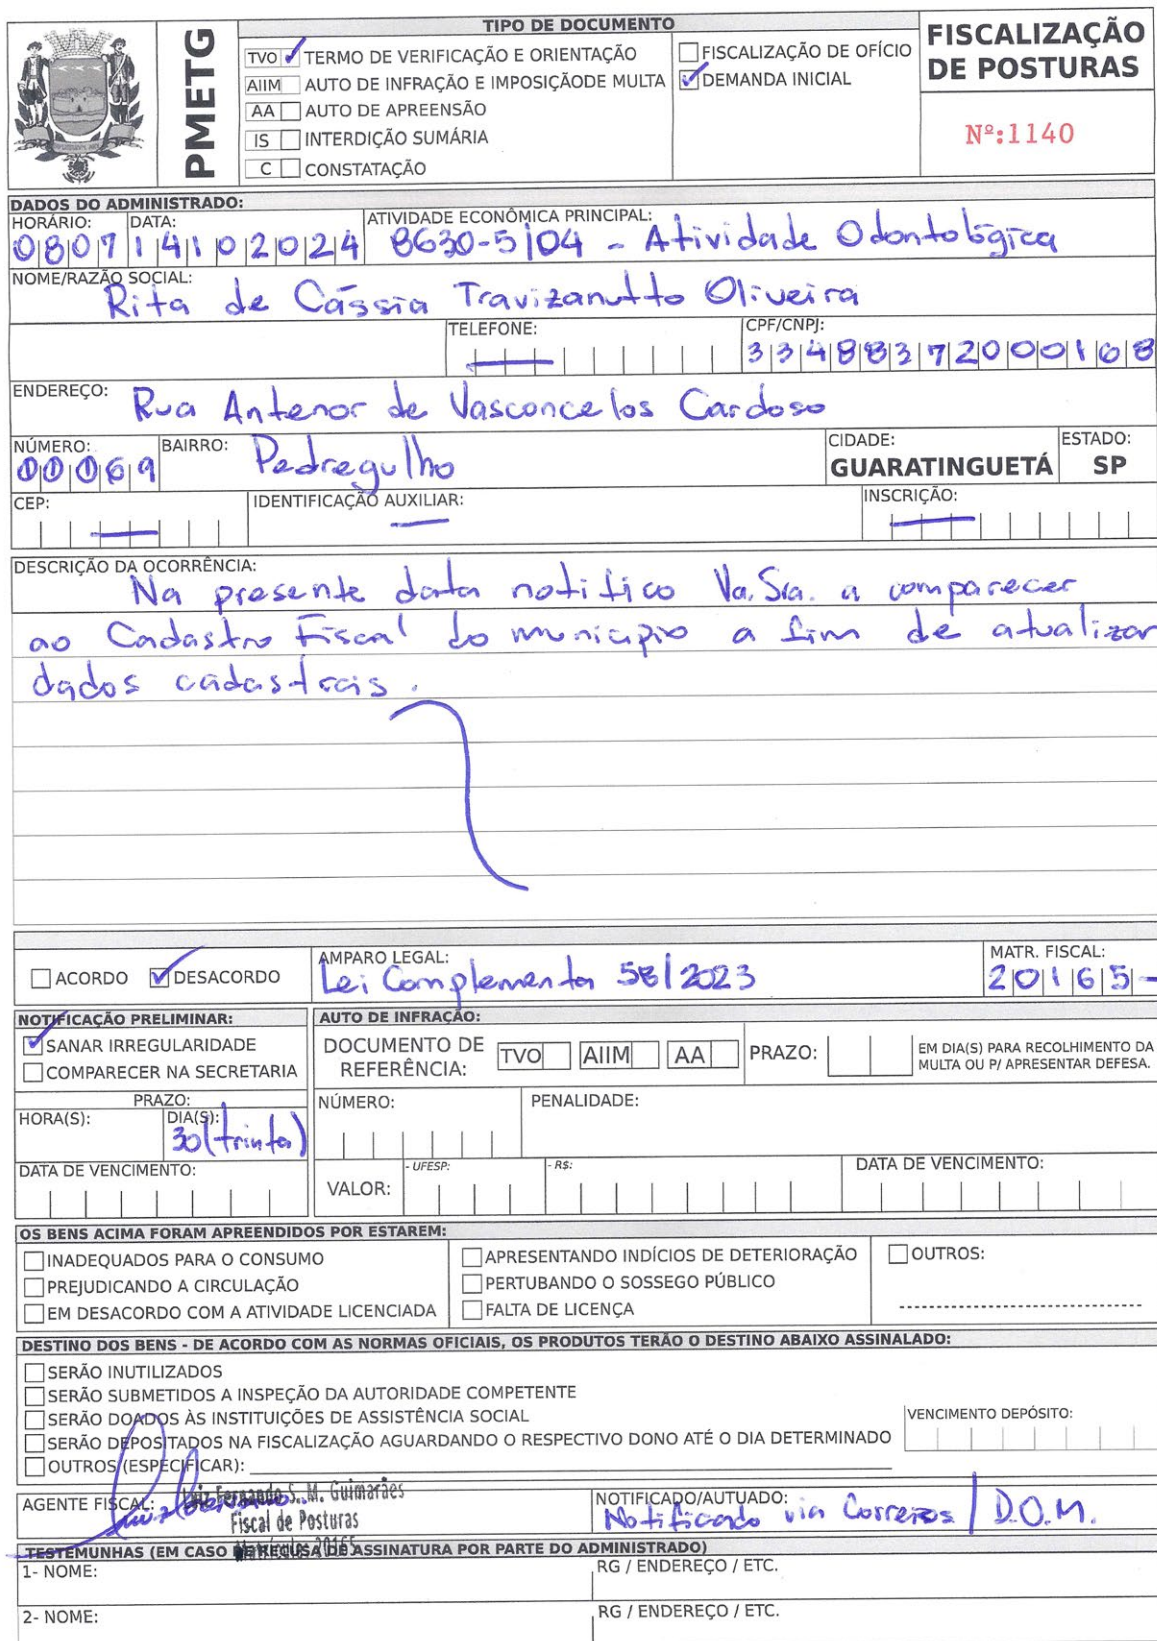 PMETG
TIPO DE DOCUMENTO
TVO TERMO DE VERIFICAÇÃO E ORIENTAÇÃO
AIIM AUTO DE INFRAÇÃO E IMPOSIÇÃODE MULTA
AA AUTO DE APREENSÃO
IS INTERDIÇÃO SUMÁRIA
C CONSTATAÇÃO
FISCALIZAÇÃO DE OFÍCIO
DEMANDA INICIAL
FISCALIZAÇÃO
DE POSTURAS
Nº:1140
DADOS DO ADMINISTRADO:
HORÁRIO: DATA: ATIVIDADE ECONÔMICA PRINCIPAL:
0807 14102024 8630-5/04 - Atividade Odontológica
NOME/RAZÃO SOCIAL:
Rita de Cássia Travizanutto Oliveira
TELEFONE: CPF/CNPJ:
33488372000168
ENDEREÇO: Rua Antenor de Vasconcelos Cardoso
NÚMERO: BAIRRO: CIDADE: ESTADO:
00069 Pedregulho GUARATINGUETÁ SP
CEP: IDENTIFICAÇÃO AUXILIAR: INSCRIÇÃO:
DESCRIÇÃO DA OCORRÊNCIA:
Na presente data notifico Va. Sra. a comparecer
ao Cadastro Fiscal do município a fim de atualizar
dados cadastrais.
ACORDO DESACORDO
AMPARO LEGAL:
Lei Complementar 58/2023
MATR. FISCAL:
20165-
NOTIFICAÇÃO PRELIMINAR:
SANAR IRREGULARIDADE
COMPARECER NA SECRETARIA
PRAZO:
HORA(S): DIA(S):
30 (trinta)
DATA DE VENCIMENTO:
AUTO DE INFRAÇÃO:
DOCUMENTO DE
REFERÊNCIA:
TVO AIIM AA PRAZO:
EM DIA(S) PARA RECOLHIMENTO DA
MULTA OU P/ APRESENTAR DEFESA.
NÚMERO: PENALIDADE:
VALOR: - UFESP: - R$: DATA DE VENCIMENTO:
OS BENS ACIMA FORAM APREENDIDOS POR ESTAREM:
INADEQUADOS PARA O CONSUMO
PREJUDICANDO A CIRCULAÇÃO
EM DESACORDO COM A ATIVIDADE LICENCIADA
APRESENTANDO INDÍCIOS DE DETERIORAÇÃO
PERTUBANDO O SOSSEGO PÚBLICO
FALTA DE LICENÇA
OUTROS:
DESTINO DOS BENS - DE ACORDO COM AS NORMAS OFICIAIS, OS PRODUTOS TERÃO O DESTINO ABAIXO ASSINALADO:
SERÃO INUTILIZADOS
SERÃO SUBMETIDOS A INSPEÇÃO DA AUTORIDADE COMPETENTE
SERÃO DOADOS ÀS INSTITUIÇÕES DE ASSISTÊNCIA SOCIAL
SERÃO DEPOSITADOS NA FISCALIZAÇÃO AGUARDANDO O RESPECTIVO DONO ATÉ O DIA DETERMINADO
OUTROS (ESPECIFICAR):
VENCIMENTO DEPÓSITO:
AGENTE FISCAL:
Luiz Fernando S. M. Guimarães
Fiscal de Posturas
Matrícula 20165
NOTIFICADO/AUTUADO:
Notificado via Correios / D.O.M.
TESTEMUNHAS (EM CASO DE RECUSA DE ASSINATURA POR PARTE DO ADMINISTRADO)
1- NOME: RG / ENDEREÇO / ETC.
2- NOME: RG / ENDEREÇO / ETC.